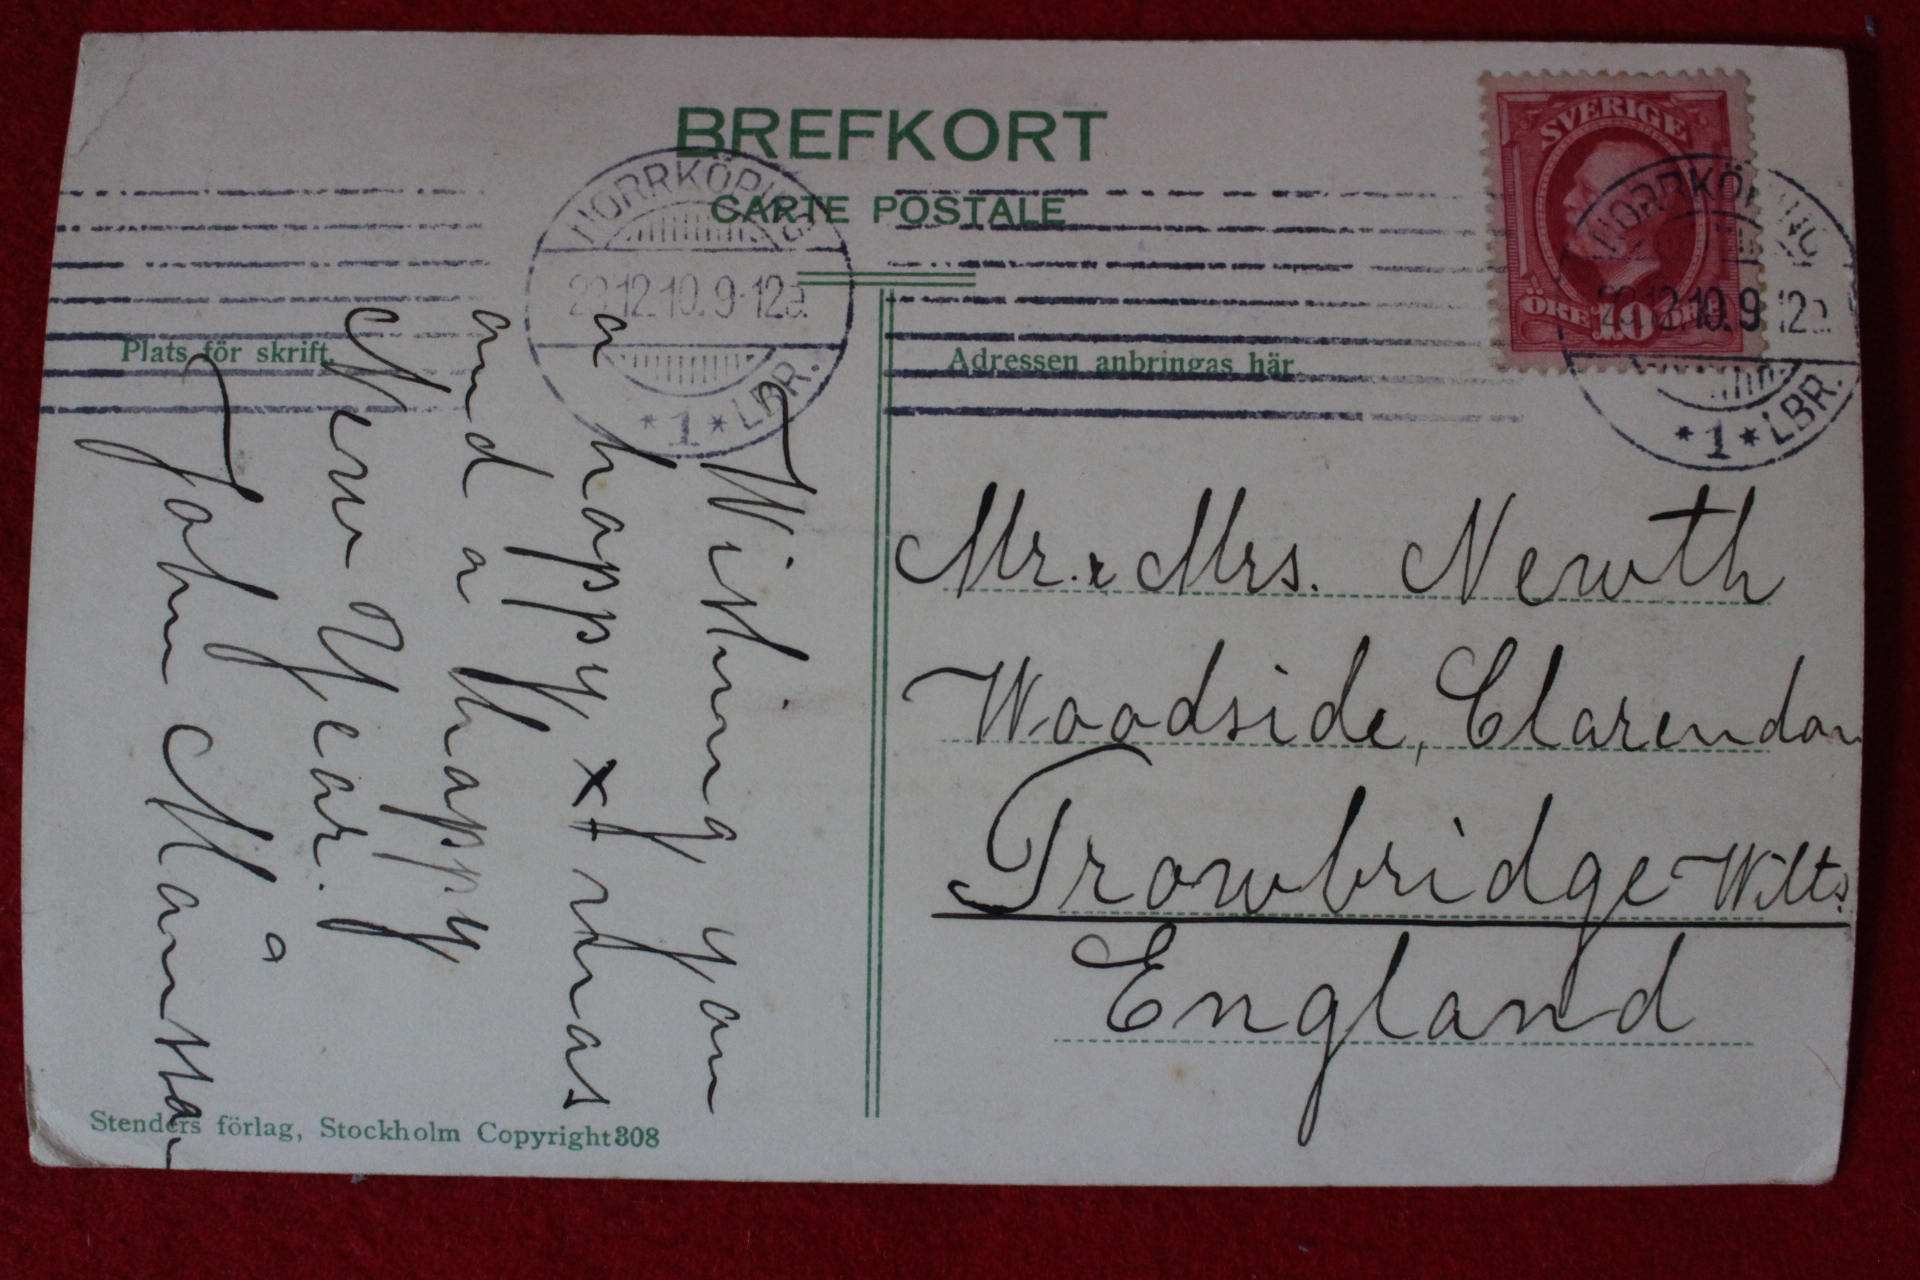 BREFKORT
CARTE POSTALE
SVERIGE
ÖRE 10 ÖRE
NORRKÖPING
12.10.9-12
*1*LBR.
NORRKÖPING
12.10.9 12
*1*LBR.
Plats för skrift.
Adressen anbringas här
Wishing you
a happy x
and a happy
New Year.
John
Mr. & Mrs. Newth
Woodside, Clarendon
Trowbridge Wilts.
England
Stenders förlag, Stockholm Copyright 308